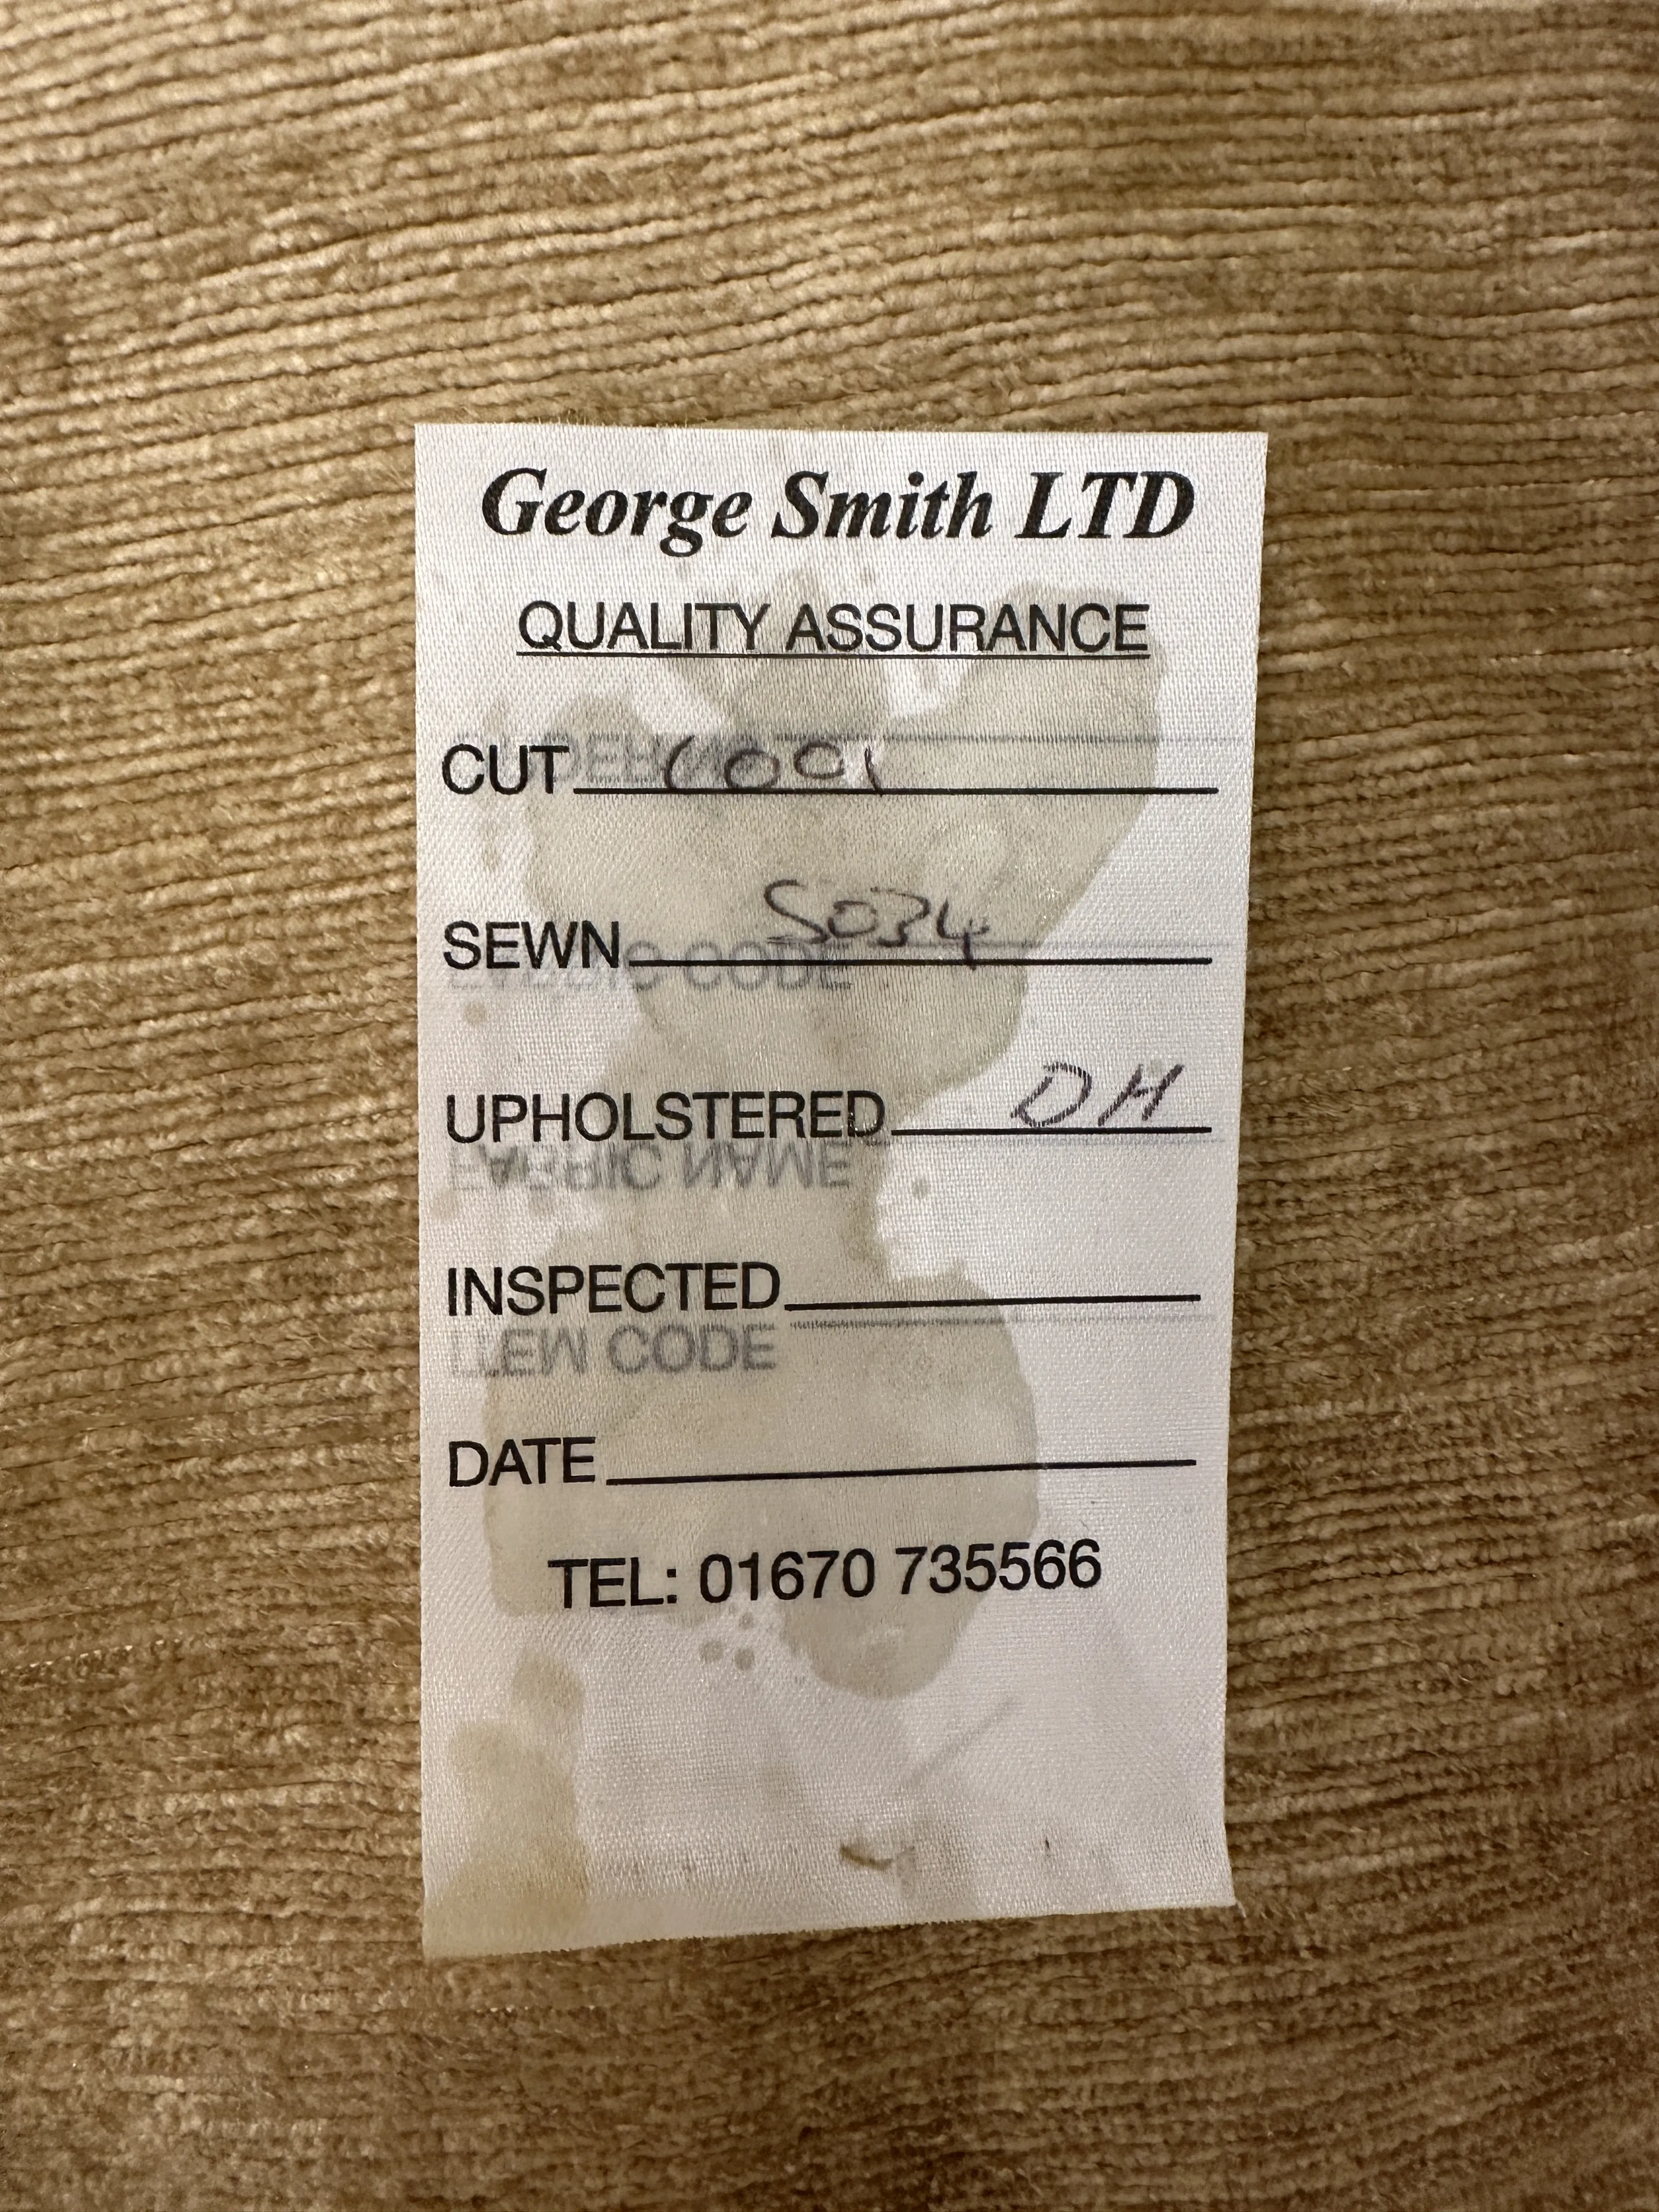 George Smith LTD
QUALITY ASSURANCE
CUT C001
SEWN S034
UPHOLSTERED DH
FABRIC NAME
INSPECTED
ITEM CODE
DATE
TEL: 01670 735566